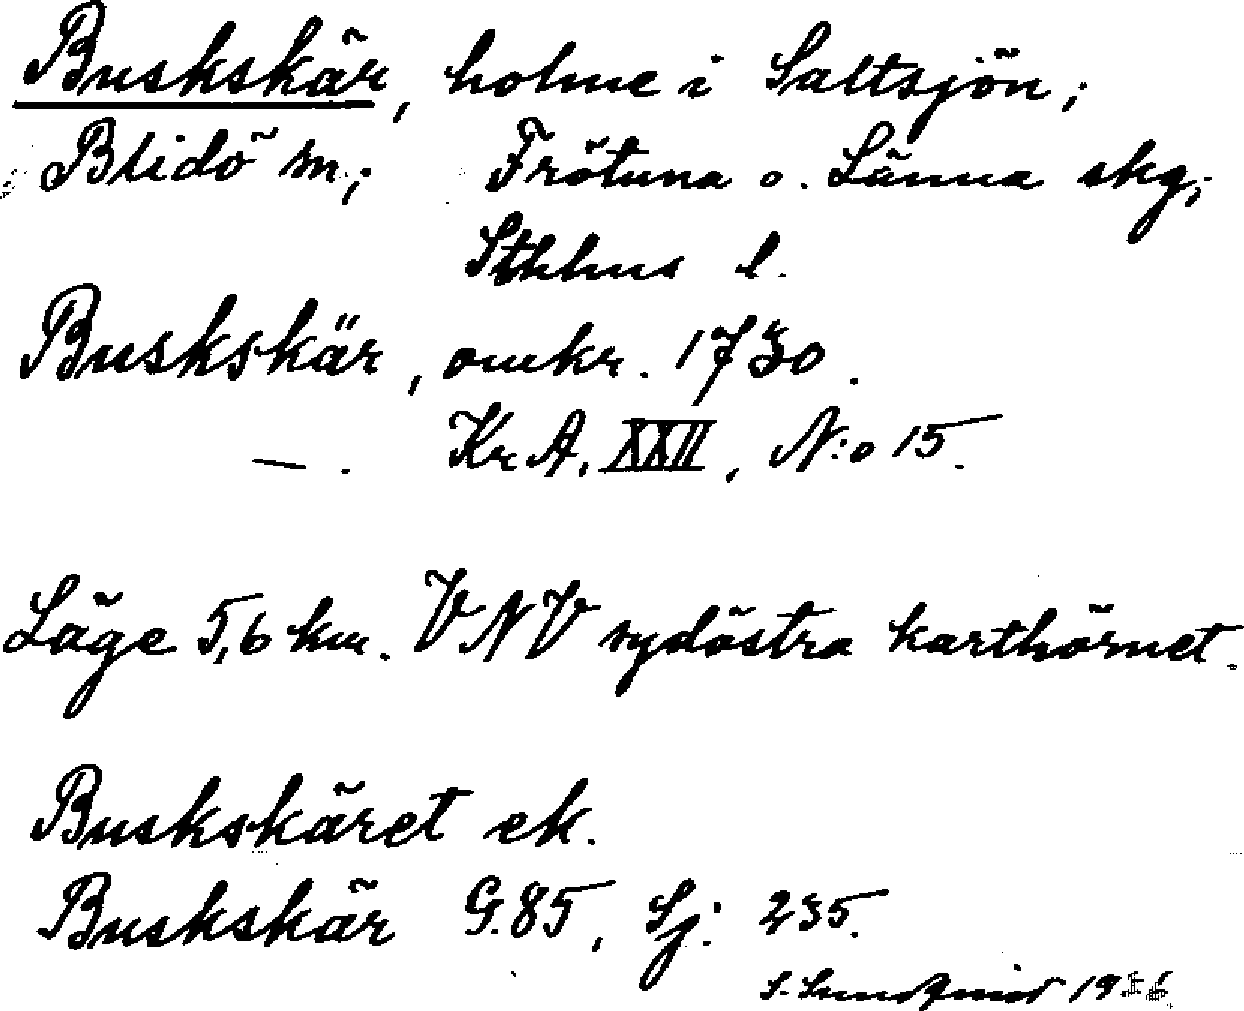 Buskskär, holme i Saltsjön;
Blidö sn.; Frötuna o. Länna skg;
Sthlms l.
Buskskär, omkr. 1730.
—. Kr. A. XXII, N:o 15.
Läge 5,6 km. VNV sydöstra karthörnet.
Buskskäret ek.
Buskskär G. 85, Sj: 235.
S. Sundqvist 19